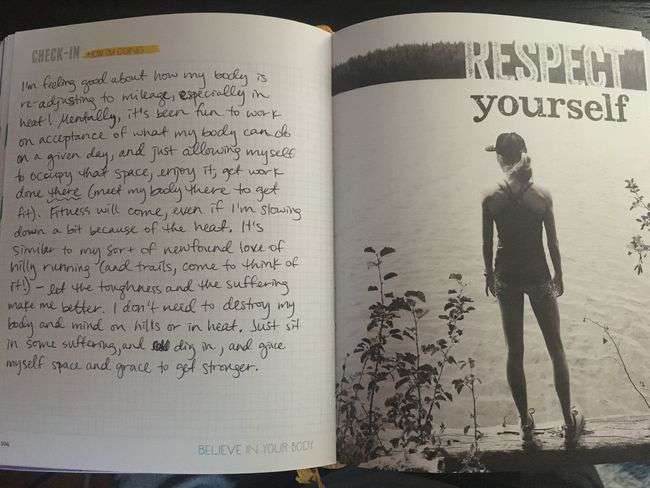 CHECK-IN HOW I'M DOING
I'm feeling good about how my body is
re-adjusting to mileage, especially in
heat! Mentally, it's been fun to work
on acceptance of what my body can do
on a given day, and just allowing myself
to occupy that space, enjoy it, get work
done there (meet my body there to get
fit). Fitness will come, even if I'm slowing
down a bit because of the heat. It's
similar to my sort of newfound love of
hilly running (and trails, come to think of
it!) – let the toughness and the suffering
make me better. I don't need to destroy my
body and mind on hills or in heat. Just sit
in some suffering, and dig in, and give
myself space and grace to get stronger.
BELIEVE IN YOUR BODY
RESPECT
yourself